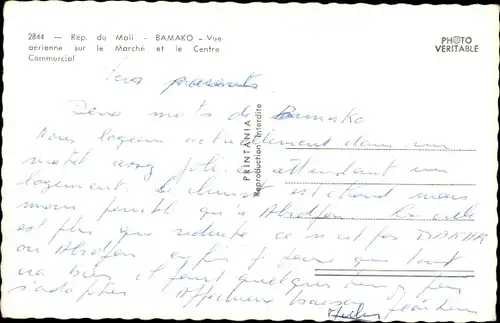 2844 — Rép. du Mali - BAMAKO - Vue
aérienne sur le Marché et le Centre
Commercial
PHOTO
VERITABLE
PRINTANIA
Reproduction interdite
mots de Bamako
Nous logeons actuellement dans un
motel assez joli en attendant un
logement. Le climat est chaud mais
moins pénible qu'à Abidjan. La ville
est plus que réduite ce n'est pas DAKAR
ou Abidjan enfin je pense que tout
ira bien il faut quelques temps pour
s'adapter. Affectueux baisers